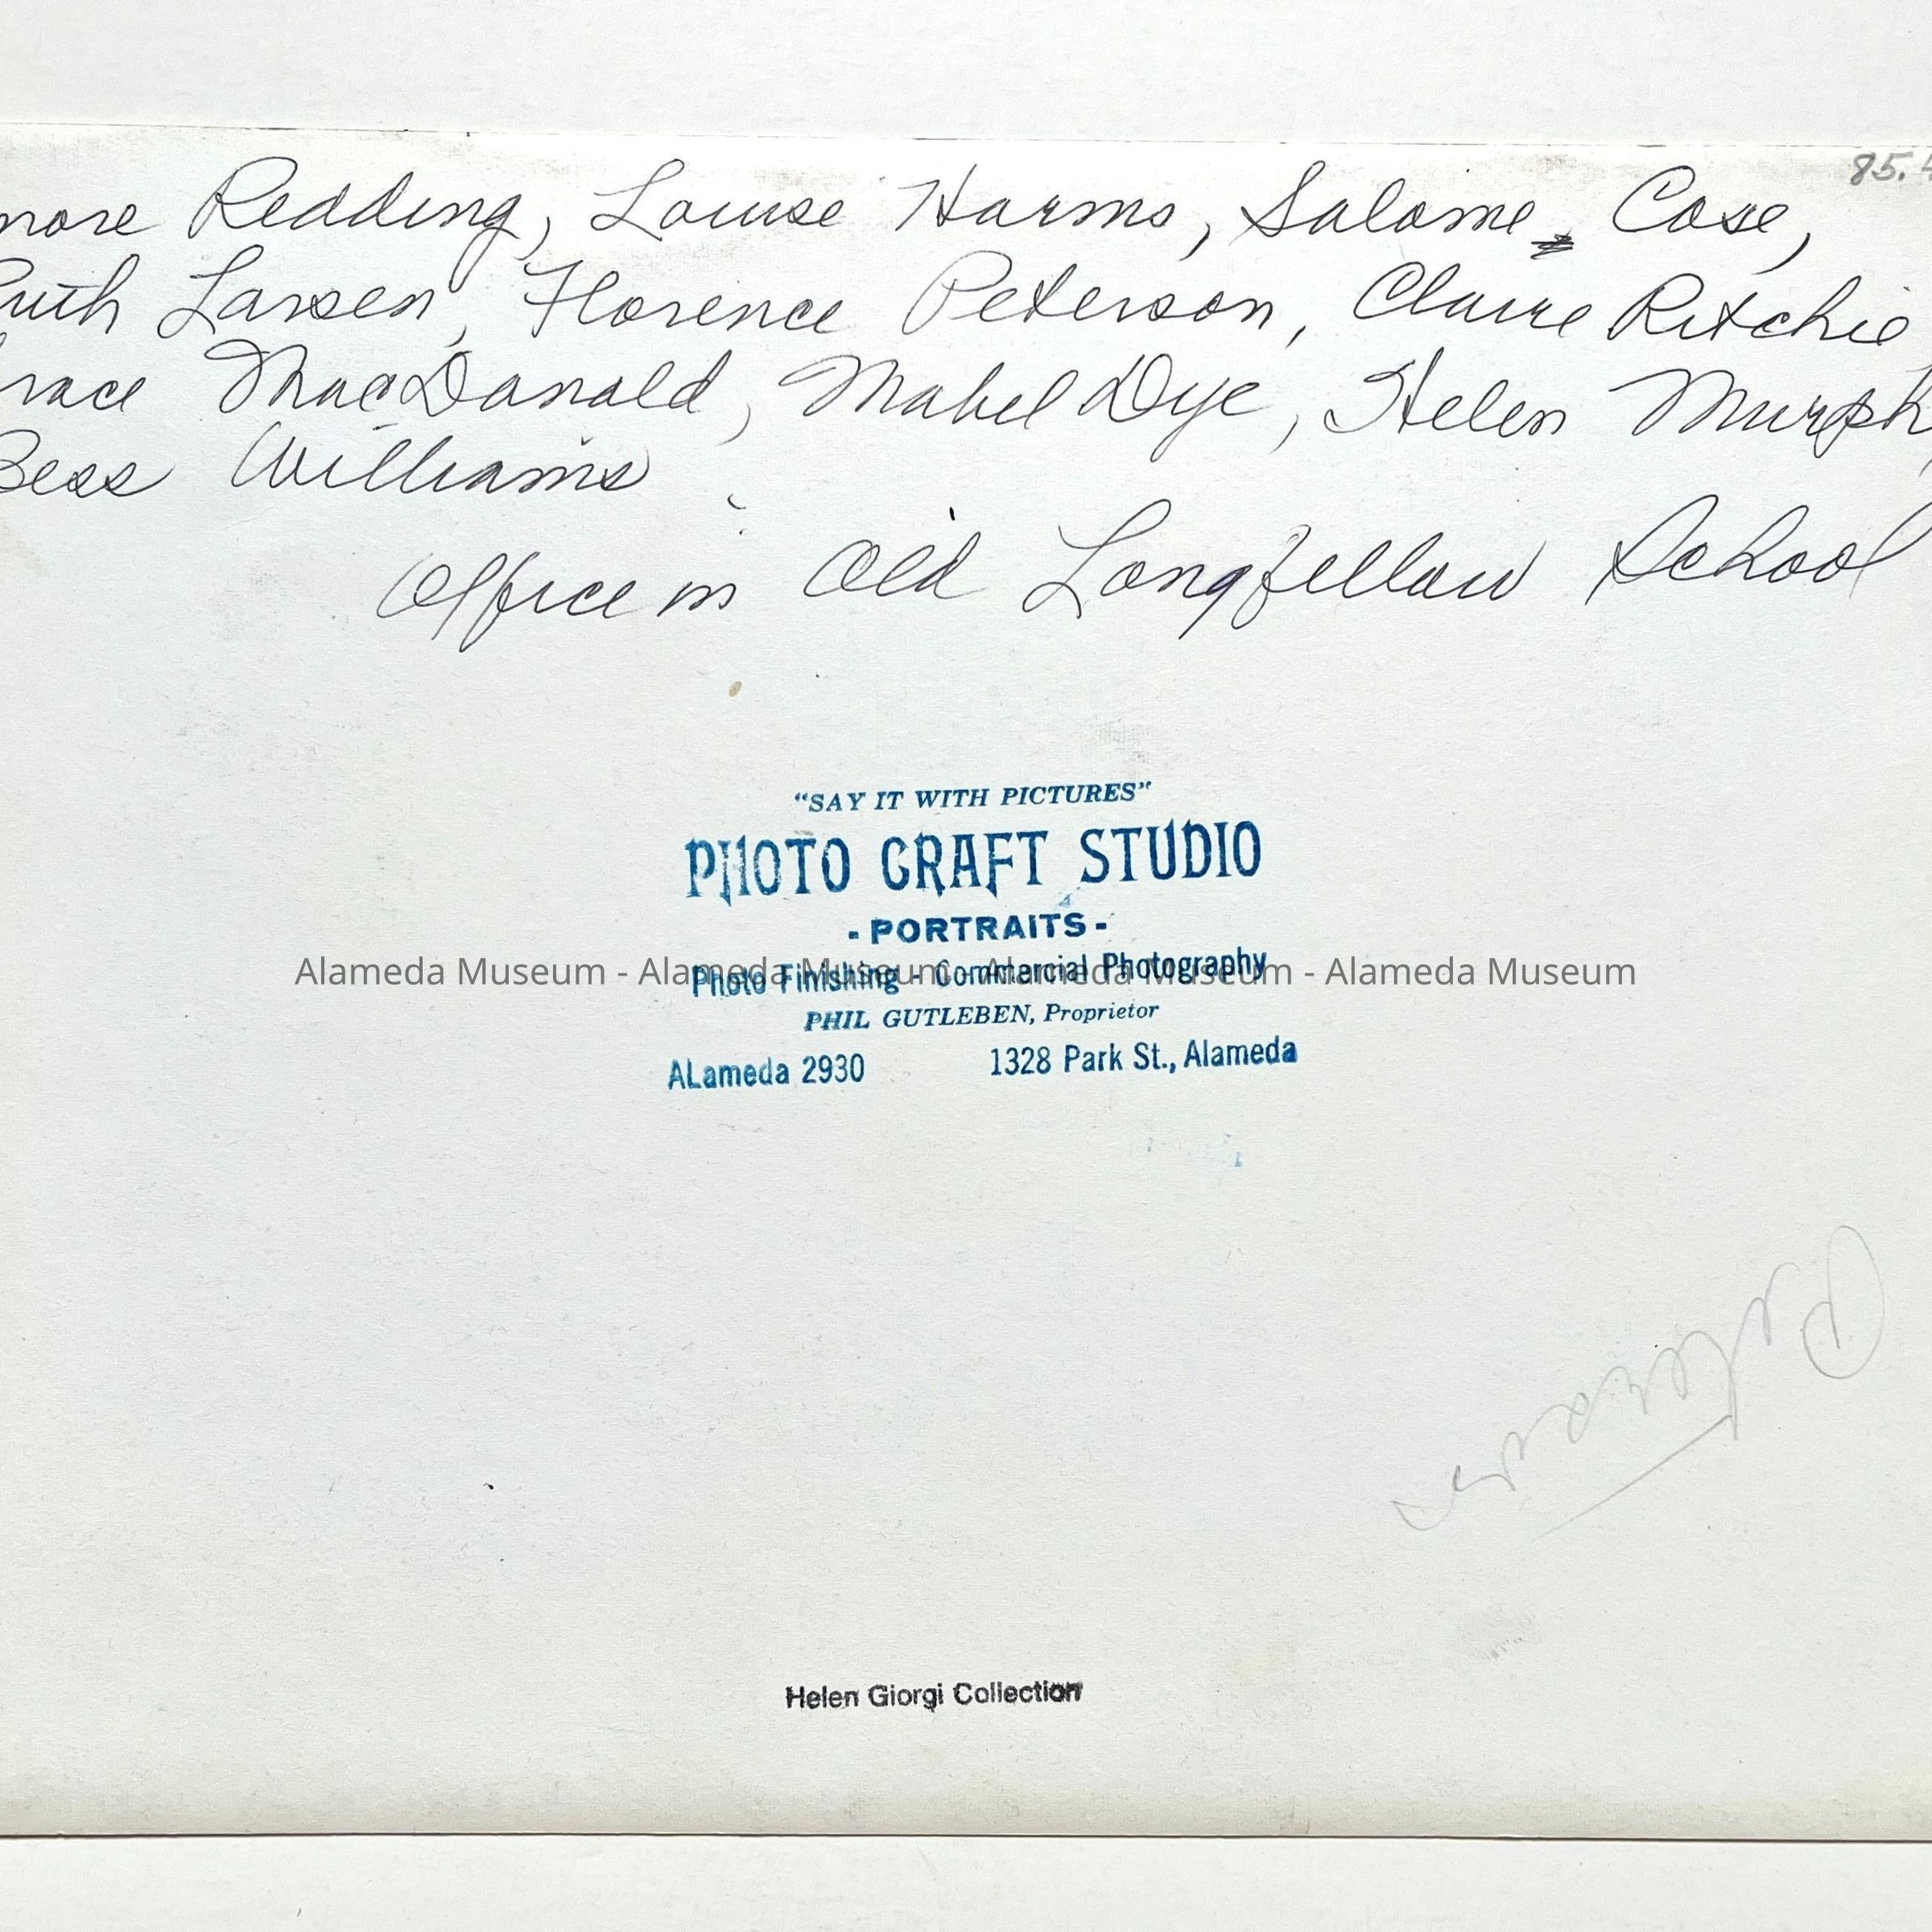 85.4
nore Redding, Louise Harms, Salome Case,
Ruth Larsen, Florence Peterson, Claire Ritchie
race MacDonald, Mabel Dye, Helen Murphy
Bess Williams
Office in Old Longfellow School
"SAY IT WITH PICTURES"
PHOTO CRAFT STUDIO
- PORTRAITS -
Photo Finishing - Commercial Photography
Alameda Museum - Alameda Museum - Alameda Museum - Alameda Museum
PHIL GUTLEBEN, Proprietor
ALameda 2930 1328 Park St., Alameda
Helen Giorgi Collection